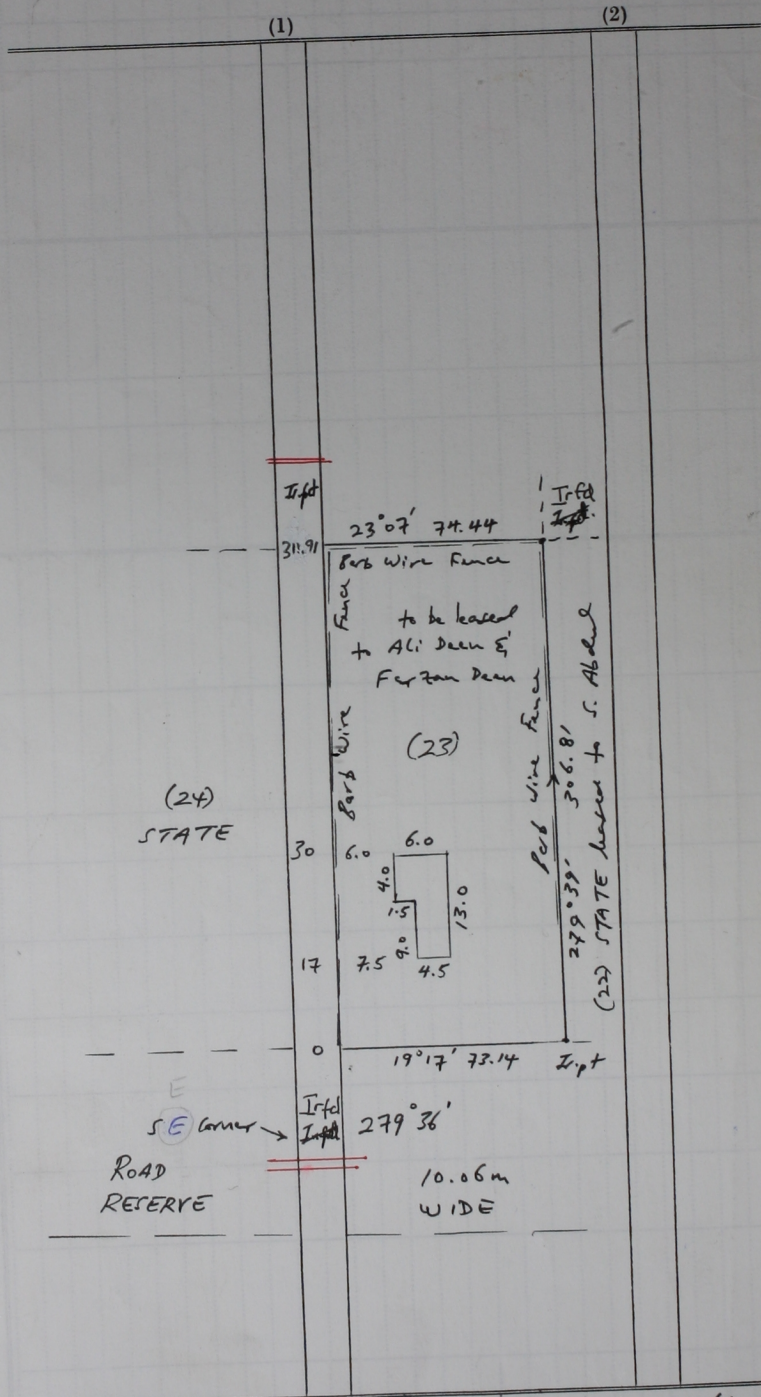 (1)
(2)
Irpt
Irfd
23°07' 74.44
311.91
Barb Wire Fence
to be leased
to Ali Deen &
Farzan Deen
Barb Wire Fence
Barb Wire Fence
(23)
279°39' 306.81
(22) STATE leased to S. Abdul
(24)
STATE
30
6.0
6.0
4.0
1.5
13.0
9.0
17
7.5
4.5
0
19°17' 73.14
Ir.pt
E
Irfd
SE Corner
279°36'
ROAD
RESERVE
10.06m
WIDE